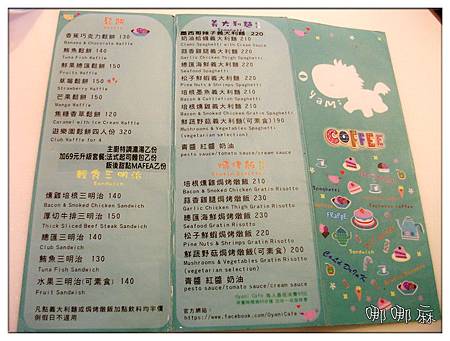 鬆餅
香蕉巧克力鬆餅 130
Banana & Chocolate Waffle
鮪魚鬆餅 130
Tuna Fish Waffle
鮮果總匯鬆餅 150
Fruits Waffle
草莓鬆餅 150
Strawberry Waffle
芒果鬆餅 150
Mango Waffle
焦糖香草鬆餅 120
Caramel with Ice Cream Waffle
遊樂園鬆餅四人份 320
Club Waffle for 4
主廚特調濃湯乙份
加69元升級套餐:法式起司麵包乙份
飯後甜點MAFEA乙份
輕食三明治
Sandwich
燻雞培根三明治 140
Bacon & Smoked Chicken Sandwich
厚切牛排三明治 150
Thick Sliced Beef Steak Sandwich
總匯三明治 140
Club Sandwich
鮪魚三明治 130
Tuna Fish Sandwich
水果三明治(可素食) 140
Fruit Sandwich
凡點義大利麵或焗烤燉飯加點飲料均半價
例假日不適用
義大利麵
墨西哥辣子義大利麵 220
奶油蛤蠣義大利麵 210
Clams Spaghetti with Cream Sauce
蒜香雞腿義大利麵 210
Garlic Chicken Thigh Spaghetti
總匯海鮮義大利麵 210
Seafood Spaghetti
松子鮮蝦義大利麵 210
Pine Nuts & Shrimps Spaghetti
培根墨魚義大利麵 210
Bacon & Cuttlefish Spaghetti
培根燻雞義大利麵 210
Bacon & Smoked Chicken Spaghetti
鮮蔬野菇義大利麵(可素食)190
Mushrooms & Vegetables Spaghetti
(vegetarian selection)
青醬 紅醬 奶油
pesto sauce/tomato sauce/cream sauce
焗烤飯
培根燻雞焗烤燉飯 210
Bacon & Smoked Chicken Gratin Risotto
蒜香雞腿焗烤燉飯 230
Garlic Chicken Thigh Gratin Risotto
總匯海鮮焗烤燉飯 230
Seafood Gratin Risotto
松子鮮蝦焗烤燉飯 220
Pine Nuts & Shrimps Gratin Risotto
鮮蔬野菇焗烤燉飯(可素食) 200
Mushrooms & Vegetables Gratin Risotto
(vegetarian selection)
青醬 紅醬 奶油
pesto sauce/tomato sauce/cream sauce
官方網站:
https://www.facebook.com/OyamiCafe
Oyami
COFFEE
Spaghetti
Espresso coffee
FRAPPE
Cafe Dolcy
Sandwich
娜娜麻